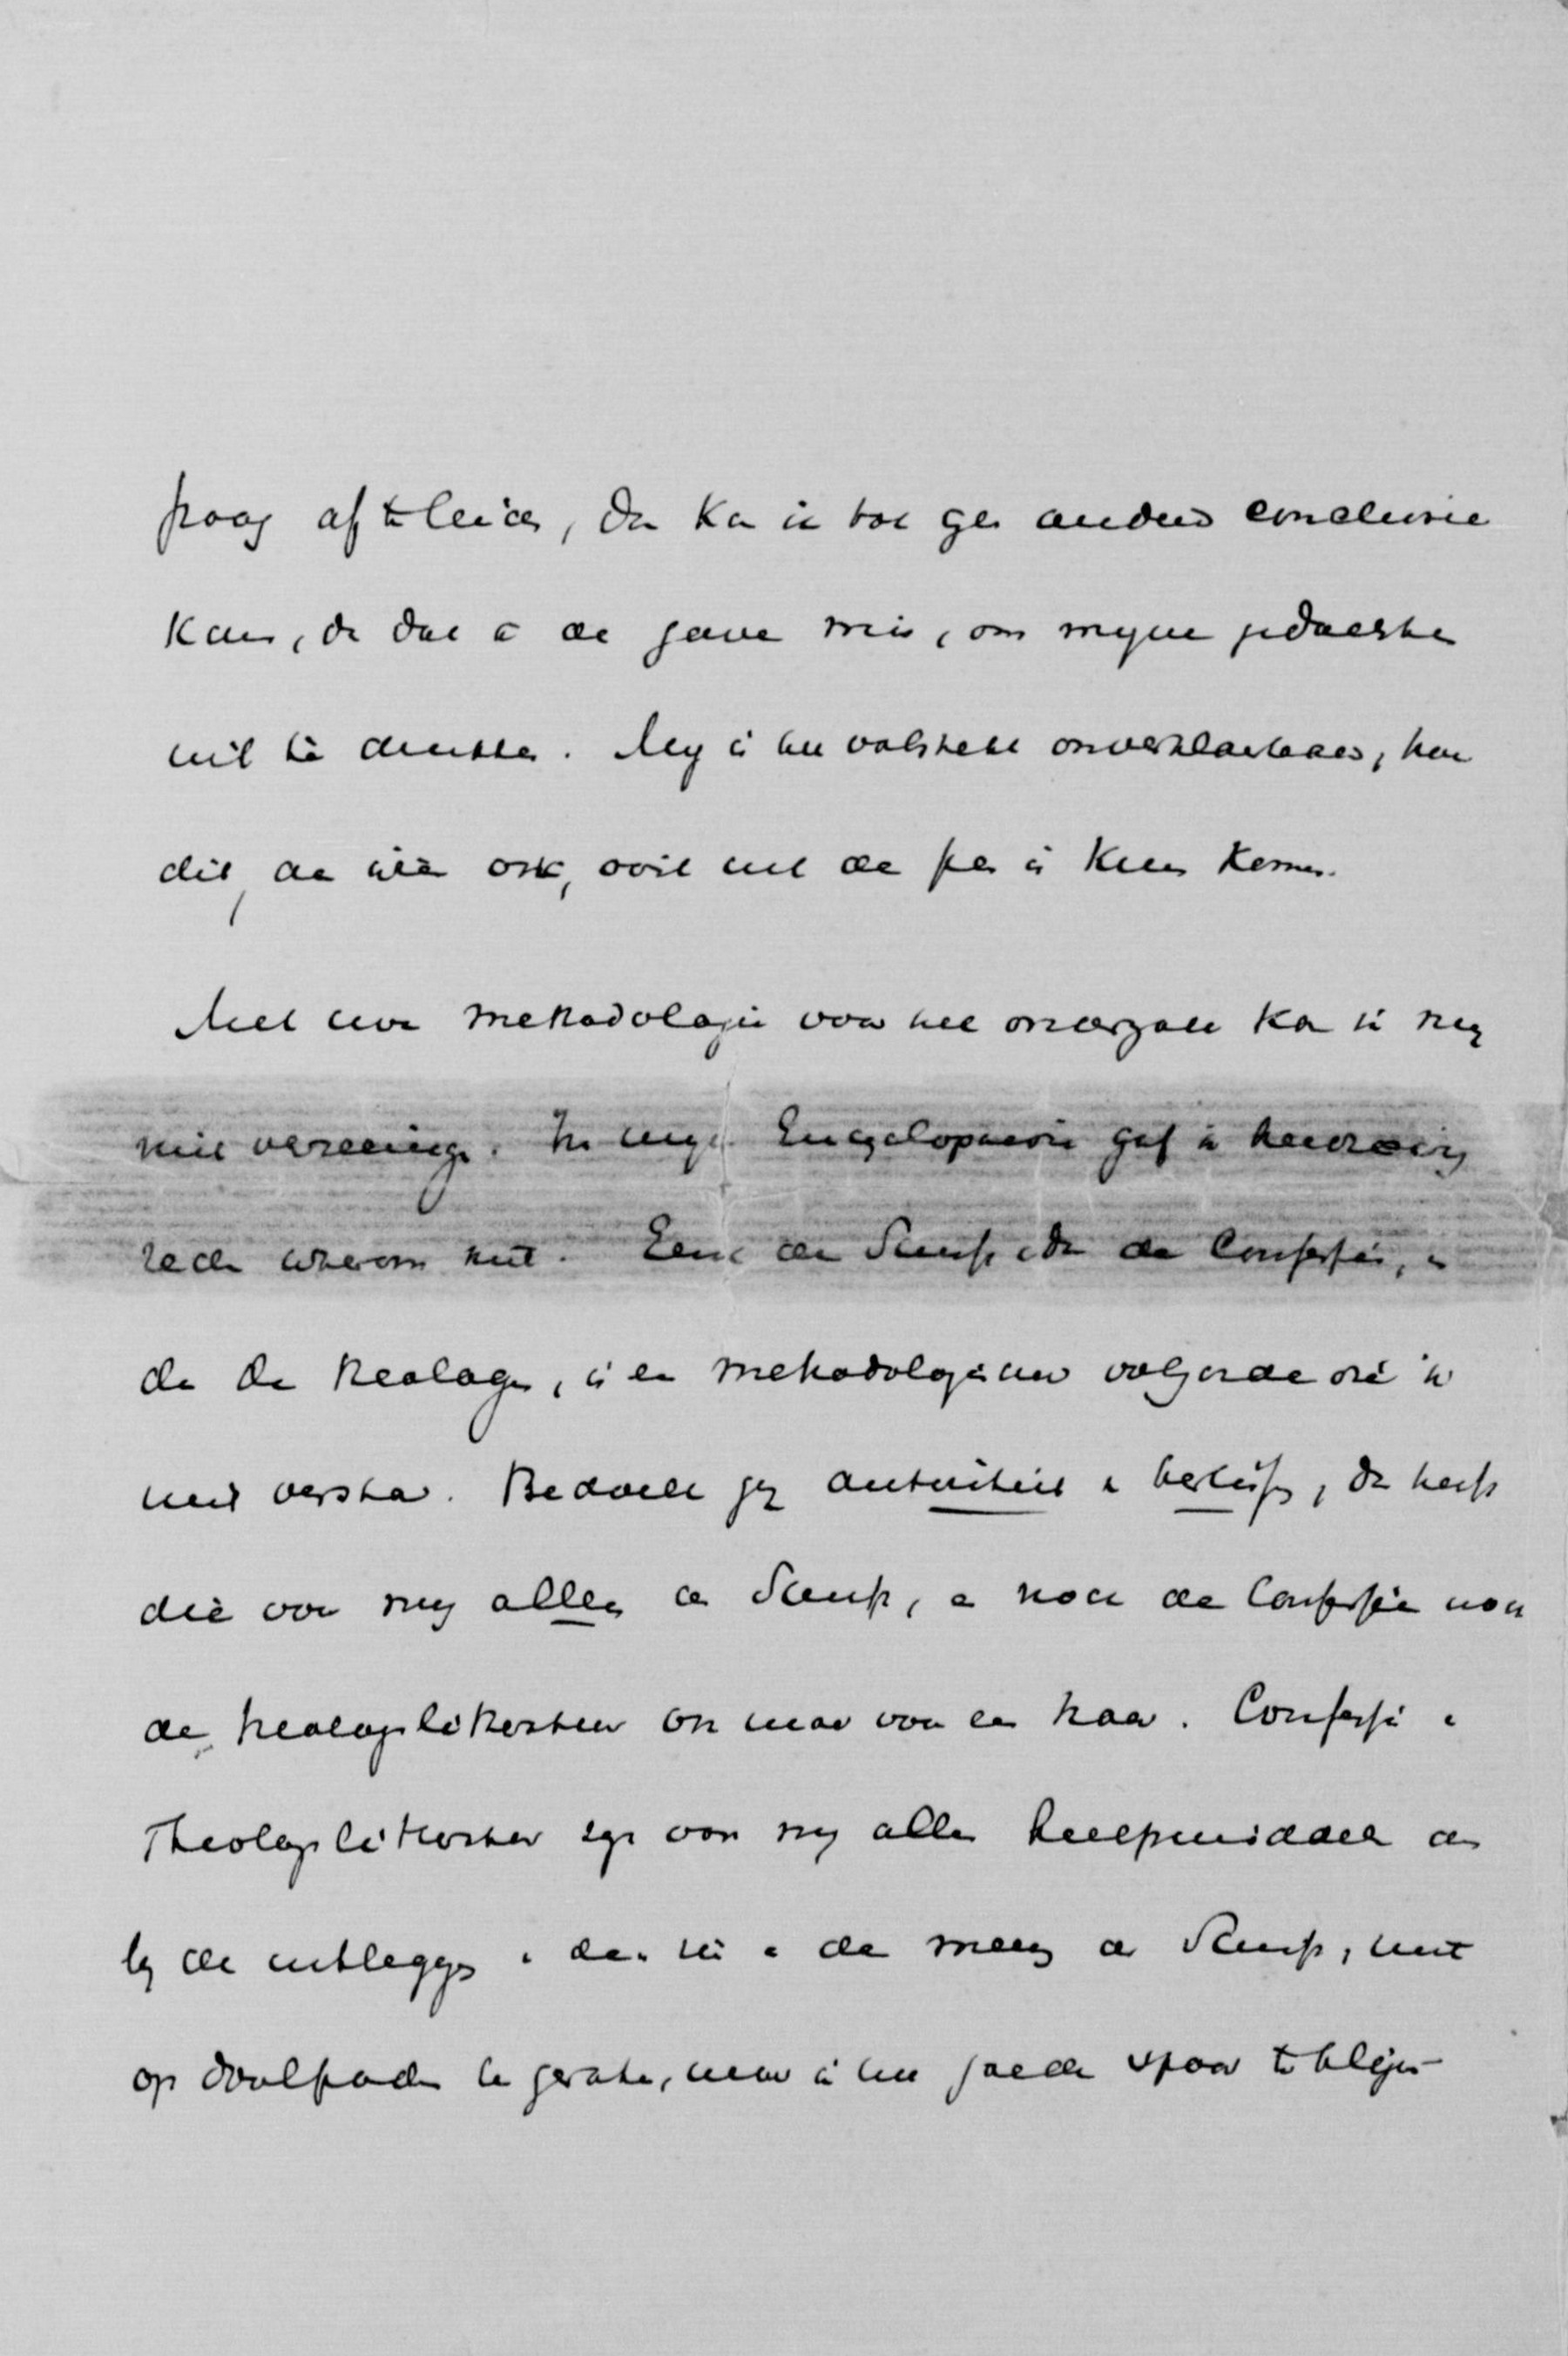 vraag af te leiden, dan kan ik tot geen andere conclusie
komen, dan dat ik de gave mis, om mijne gedachten
uit te drukken. Mij is het volstrekt onverklaarbaar, hoe
dit, aan wie ook, ooit uit de pen is kunnen komen.
Met uwe methodologie voor het onderzoek kan ik mij
niet vereenigen. In mijn Encyclopaedie gaf ik
reden waarom niet. Eerst de Schrift, dan de Confessie, en
dan de theologen, is een methodologische volgorde die ik
niet versta. Bedoelt gij autoriteit en beslissing, dan heeft
die voor mij alleen de Schrift, en noch de Confessie noch
de theologische letterkunde ook maar voor een haar. Confessie en
Theologische letterkunde zijn voor mij alleen hulpmiddelen om
bij de uitleggen en de mening der Schrift, niet
op doolpaden te geraken, maar in het goede spoor te blijven